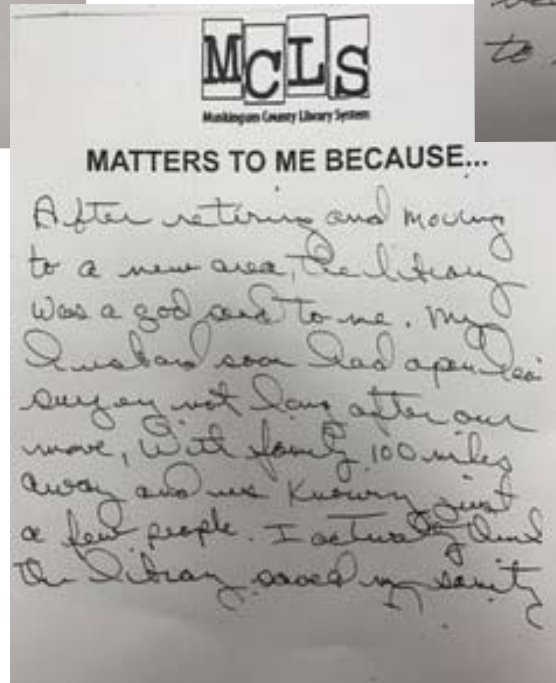 to
MCLS
Muskingum County Library System
MATTERS TO ME BECAUSE...
After retiring and moving
to a new area, the library
was a god send to me. My
husband soon had open
surgery not long after our
move, With family 100 miles
away and me knowing just
a few people. I actually think
the library saved my sanity